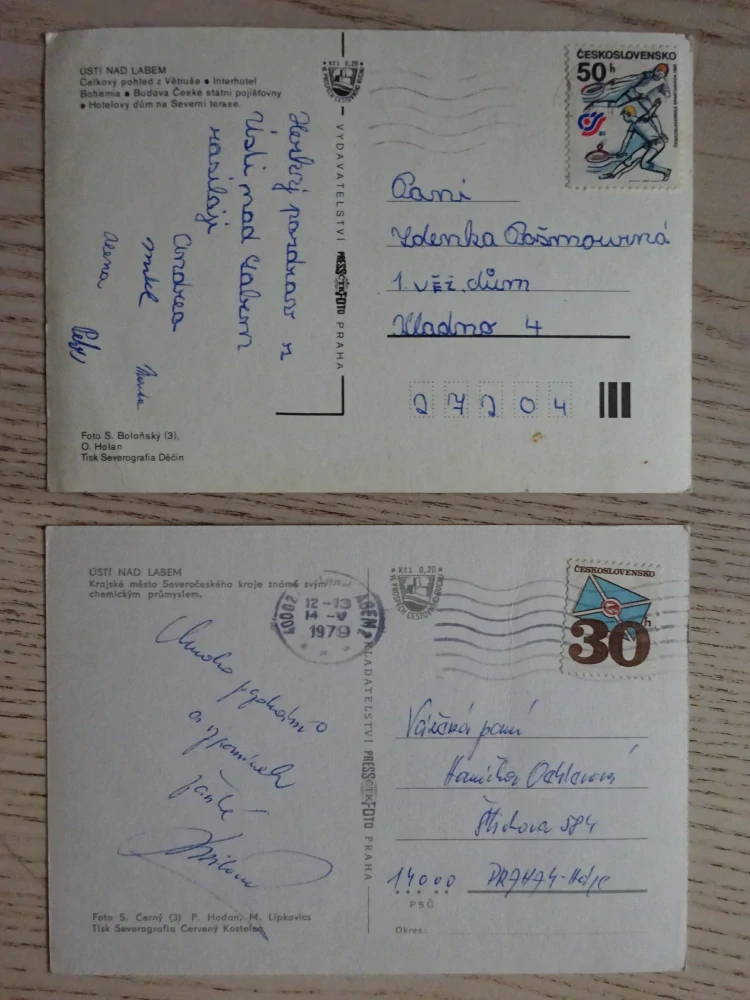 ÚSTÍ NAD LABEM
Celkový pohled z Větruše • Interhotel
Bohemia • Budova České státní pojišťovny
• Hotelový dům na Severní terase.
Kčs 0,20
VE PROSPĚCH CESTOVNÍHO RUCHU
Hezký pozdrav z
Ústí nad Labem
zasílají
Andrea
Alena
Petr
VYDAVATELSTVÍ PRESSFOTO PRAHA
ČESKOSLOVENSKO
50 h
Paní
Zdenka Pošmourná
1. věž. dům
Kladno 4
27204
Foto S. Boloňský (3),
O. Holan
Tisk Severografia Děčín
ÚSTÍ NAD LABEM
Krajské město Severočeského kraje známé svým
chemickým průmyslem.
Kčs 0,20
VE PROSPĚCH CESTOVNÍHO RUCHU
40002
12-13
14-V
1979
ČESKOSLOVENSKO
30h
Mnoho pozdravů
a vzpomínek
VYDAVATELSTVÍ PRESSFOTO PRAHA
Vážená paní
Štichova 584
14000 PRAHA 4 - Háje
PSČ
Okres:
Foto S. Černý (3) P. Hodan, M. Lipkovics
Tisk Severografia Červený Kostelec